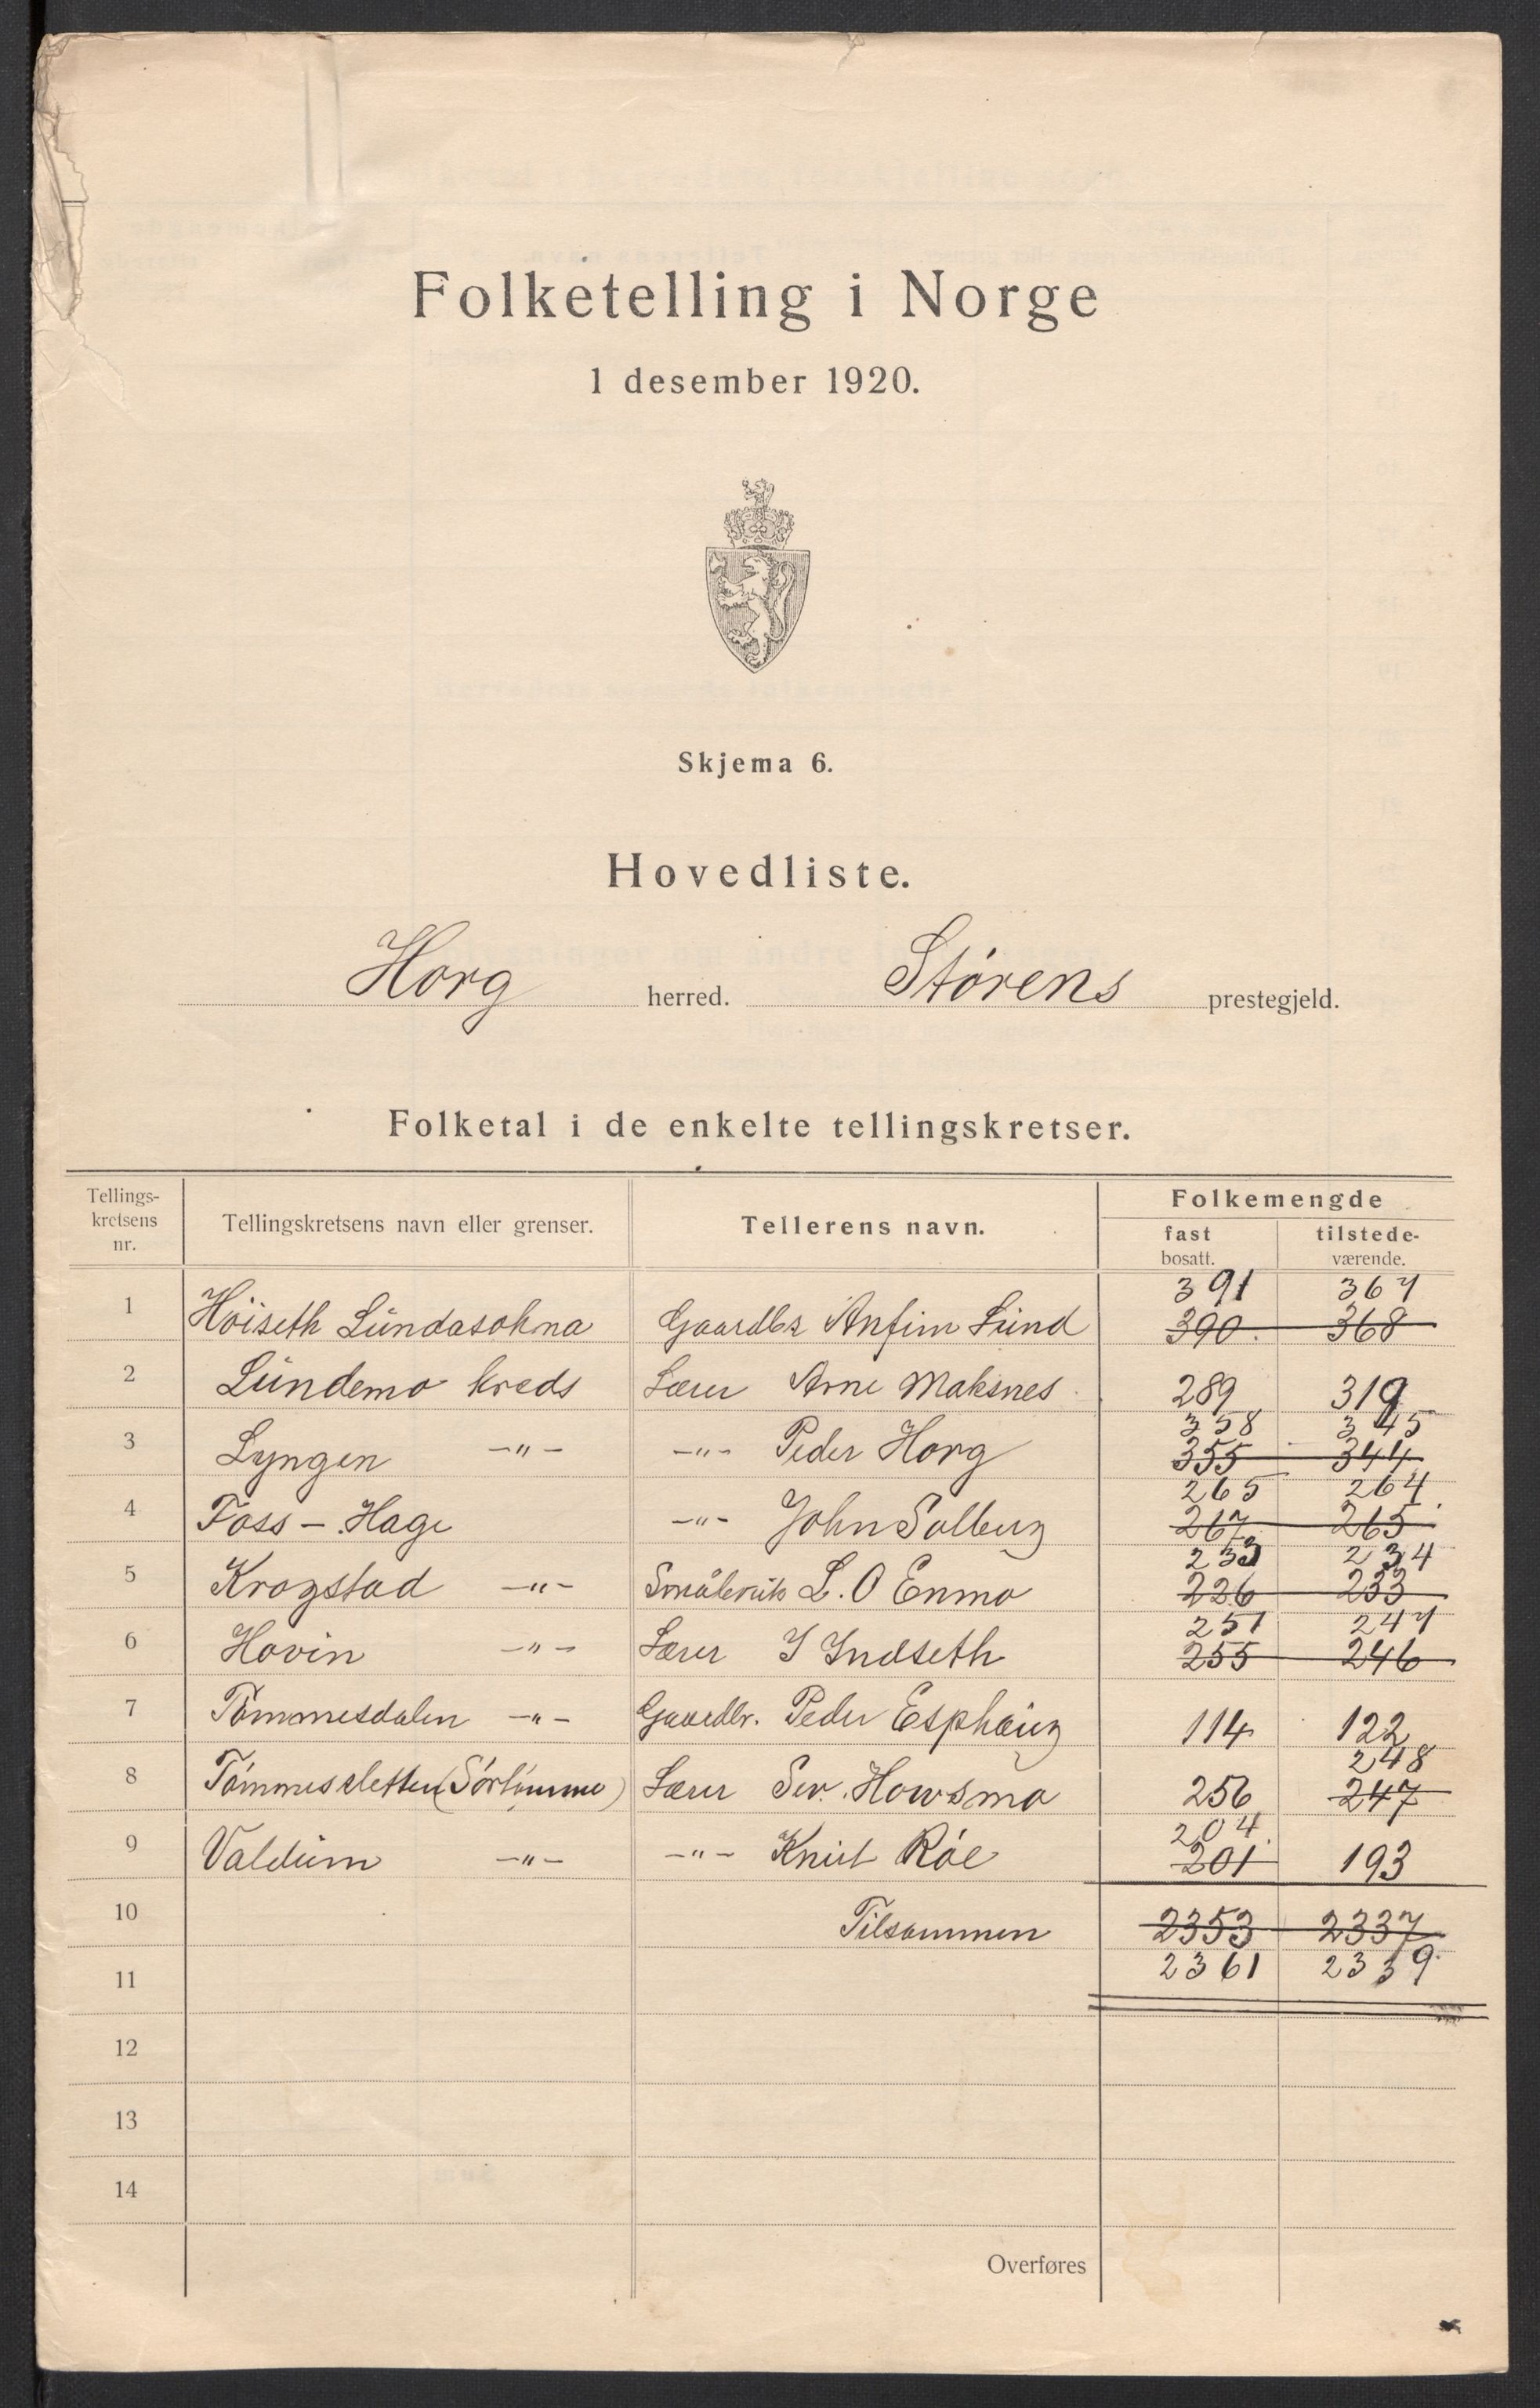 Folketelling i Norge
1 desember 1920.
Skjema 6.
Hovedliste.
Horg herred. Størens prestegjeld.
Folketal i de enkelte tellingskretser.
Tellings-kretsens nr. Tellingskretsens navn eller grenser. Tellerens navn. Folkemengde
fast bosatt. tilstede-værende.
391 367
1 Höiseth Lundasokna Gaardbr Anfim Lund 390 368
2 Lundemo kreds Lærer Arne Maksnes 289 319
358 345
3 Lyngen -"- -"- Peder Horg 355 344
265 264
4 Foss - Hage -"- John Solberg 267 265
233 234
5 Krogstad -"- Småbruk L. O Enmo 226 233
251 247
6 Hovin -"- Lærer I Indseth 255 246
7 Tömmesdalen -"- Gaardbr. Peder Esphaug 114 122
248
8 Tömmesletten (Sörtömme) Lærer Sev. Howsmo 256 247
204
9 Valdum -"- -"- Knut Röe 201 193
10 Tilsammen 2353 2337
2361 2339
11
12
13
14
Overføres